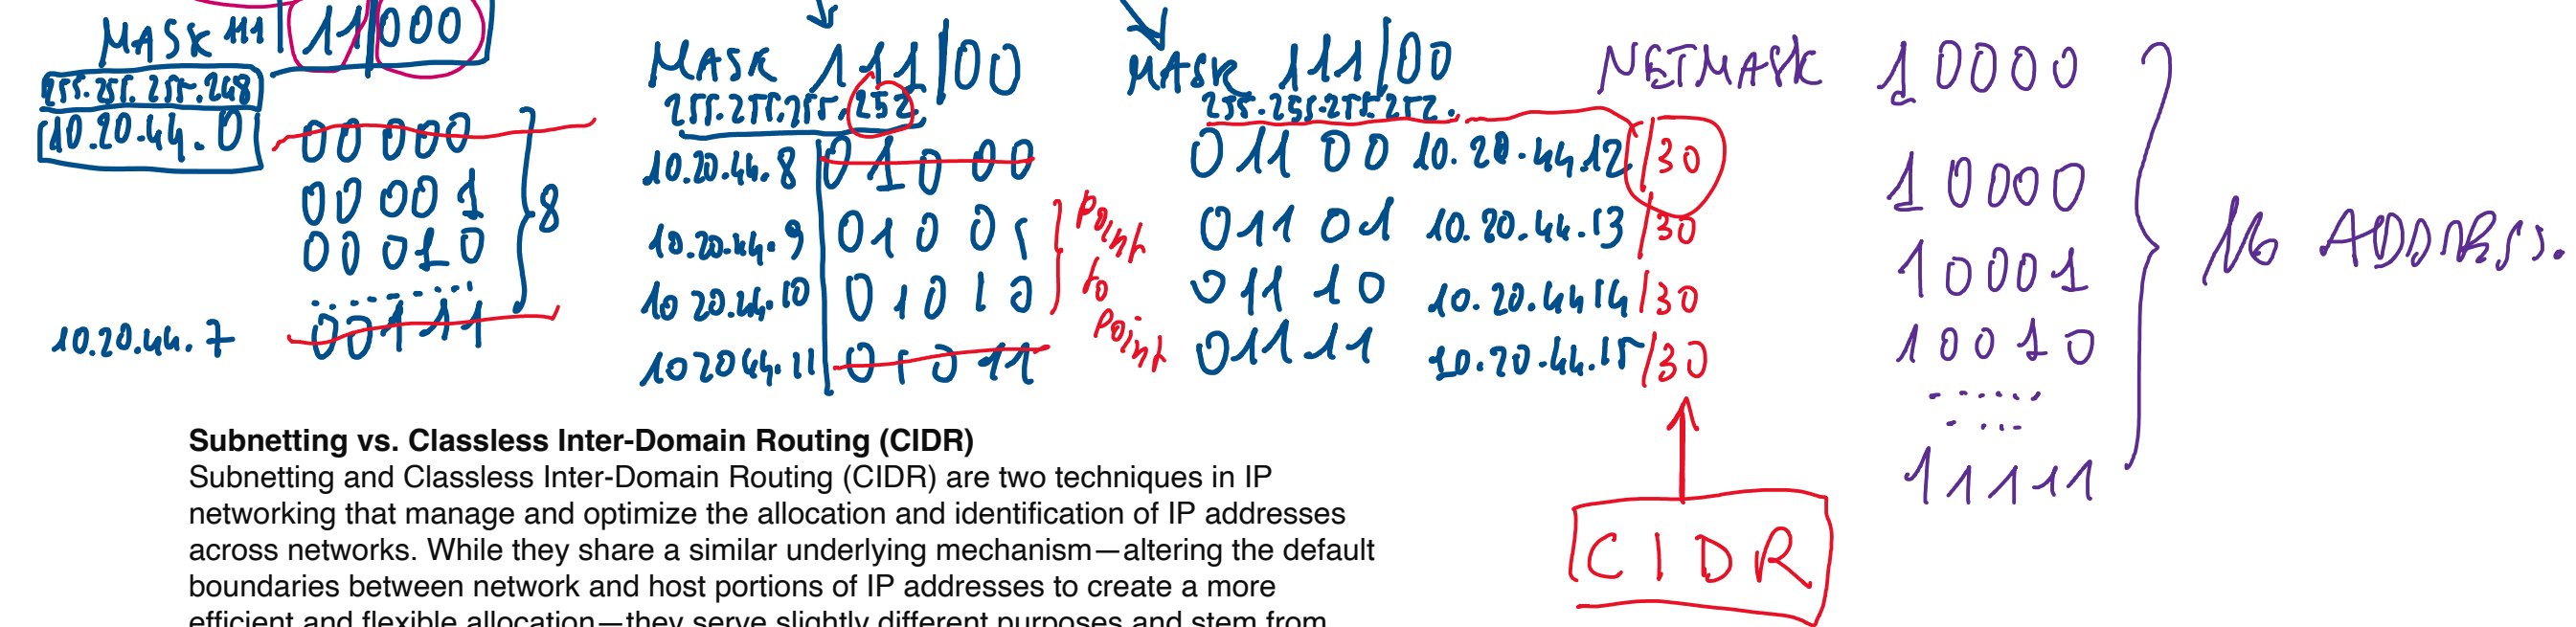 MASK 111 11 000
255.255.255.248
10.20.44.0 00 000
00 001
00 010
10.20.44.7 00111
8
MASK 111/00
255.255.255.252
10.20.44.8 01000
10.20.44.9 01001
10.20.44.10 01010
10.20.44.11 01011
Point
to
Point
MASK 111/00
255.255.255.252.
01100 10.20.44.12/30
01101 10.20.44.13/30
01110 10.20.44.14/30
01111 10.20.44.15/30
CIDR
NETMASK 10000
10000
10001
10010
11111
16 ADDRESS.
Subnetting vs. Classless Inter-Domain Routing (CIDR)
Subnetting and Classless Inter-Domain Routing (CIDR) are two techniques in IP
networking that manage and optimize the allocation and identification of IP addresses
across networks. While they share a similar underlying mechanism—altering the default
boundaries between network and host portions of IP addresses to create a more
efficient and flexible allocation—they serve slightly different purposes and stem from